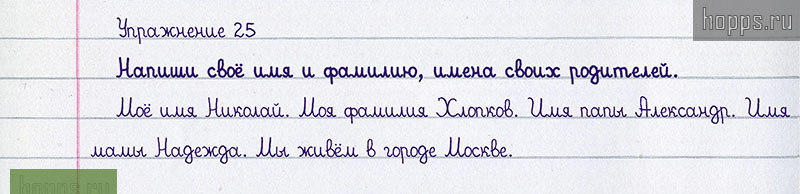 hopps.ru
Упражнение 25
Напиши своё имя и фамилию, имена своих родителей.
Моё имя Николай. Моя фамилия Хлопков. Имя папы Александр. Имя
мамы Надежда. Мы живём в городе Москве.
hopps.ru